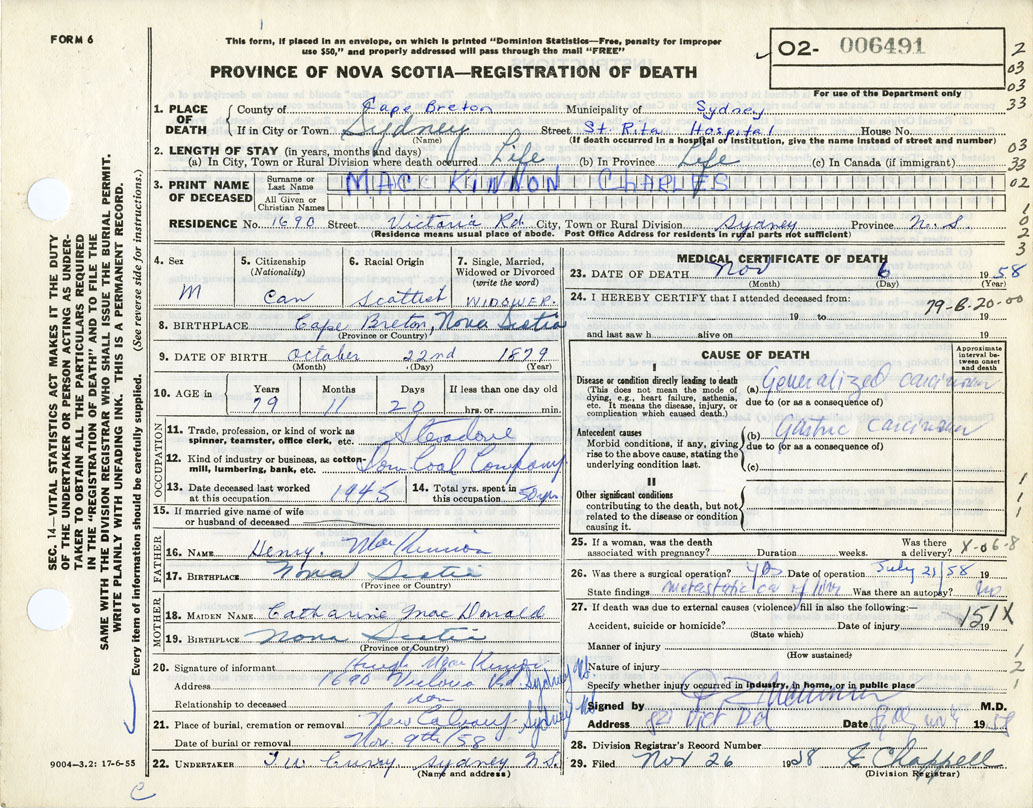 FORM 6
This form, if placed in an envelope, on which is printed "Dominion Statistics—Free, penalty for improper
use $50," and properly addressed will pass through the mail "FREE"
02- 006491
For use of the Department only
PROVINCE OF NOVA SCOTIA—REGISTRATION OF DEATH
1. PLACE OF DEATH
County of Cape Breton Municipality of Sydney
If in City or Town Sydney Street St. Rita Hospital House No.
(Name) (If death occurred in a hospital or institution, give the name instead of street and number)
2. LENGTH OF STAY (in years, months and days)
(a) In City, Town or Rural Division where death occurred Life (b) In Province Life (c) In Canada (if immigrant)
3. PRINT NAME OF DECEASED
Surname or Last Name MAC KINNON CHARLES
All Given or Christian Names
RESIDENCE No. 1690 Street Victoria Rd. City, Town or Rural Division Sydney Province N.S.
(Residence means usual place of abode. Post Office Address for residents in rural parts not sufficient)
4. Sex M
5. Citizenship (Nationality) Can
6. Racial Origin Scottish
7. Single, Married, Widowed or Divorced (write the word) WIDOWER.
8. BIRTHPLACE Cape Breton, Nova Scotia
(Province or Country)
9. DATE OF BIRTH October 22nd 1879
(Month) (Day) (Year)
10. AGE in Years 79 Months 11 Days 20 If less than one day old hrs. or min.
OCCUPATION
11. Trade, profession, or kind of work as spinner, teamster, office clerk, etc. Stevadore
12. Kind of industry or business, as cotton-mill, lumbering, bank, etc. Dom Coal Company
13. Date deceased last worked at this occupation 1945
14. Total yrs. spent in this occupation 50 yrs
15. If married give name of wife or husband of deceased
FATHER
16. NAME Henry. MacKinnon
17. BIRTHPLACE Nova Scotia
(Province or Country)
MOTHER
18. MAIDEN NAME Catharine MacDonald
19. BIRTHPLACE Nova Scotia
(Province or Country)
20. Signature of informant Hugh MacKinnon
Address 1690 Victoria Rd. Sydney N.S.
Relationship to deceased son
21. Place of burial, cremation or removal New Calvary Sydney NS
Date of burial or removal Nov. 9th/58
22. UNDERTAKER T W Curry Sydney N.S.
(Name and address)
MEDICAL CERTIFICATE OF DEATH
23. DATE OF DEATH Nov 6 1958
(Month) (Day) (Year)
24. I HEREBY CERTIFY that I attended deceased from: 79-6-20-00
19 to 19
and last saw h alive on 19
CAUSE OF DEATH
Approximate interval between onset and death
I
Disease or condition directly leading to death
(This does not mean the mode of dying, e.g., heart failure, asthenia, etc. It means the disease, injury, or complication which caused death.)
(a) Generalized carcinoma
due to (or as a consequence of)
Antecedent causes
Morbid conditions, if any, giving rise to the above cause, stating the underlying condition last.
(b) Gastric carcinoma
due to (or as a consequence of)
(c)
II
Other significant conditions
contributing to the death, but not related to the disease or condition causing it.
25. If a woman, was the death associated with pregnancy? Duration weeks. Was there a delivery? X-06-8
26. Was there a surgical operation? yes Date of operation July 21/58 19
State findings metastatic ca of Was there an autopsy? no
27. If death was due to external causes (violence) fill in also the following:—
151X
Accident, suicide or homicide? Date of injury 19
(State which)
Manner of injury
(How sustained)
Nature of injury
Specify whether injury occurred in industry, in home, or in public place
Signed by M.D.
Address Vict Rd Date 1958
28. Division Registrar's Record Number
29. Filed Nov 26 1958 E Chappell
(Division Registrar)
9004—3.2: 17-6-55
SEC. 14—VITAL STATISTICS ACT MAKES IT THE DUTY
OF THE UNDERTAKER OR PERSON ACTING AS UNDER-
TAKER TO OBTAIN ALL THE PARTICULARS REQUIRED
IN THE "REGISTRATION OF DEATH" AND TO FILE THE
SAME WITH THE DIVISION REGISTRAR WHO SHALL ISSUE THE BURIAL PERMIT.
WRITE PLAINLY WITH UNFADING INK. THIS IS A PERMANENT RECORD.
Every item of information should be carefully supplied. (See reverse side for instructions.)
2
03
03
33
03
33
02
1
9
2
3
1
1
1
1
2
1
C